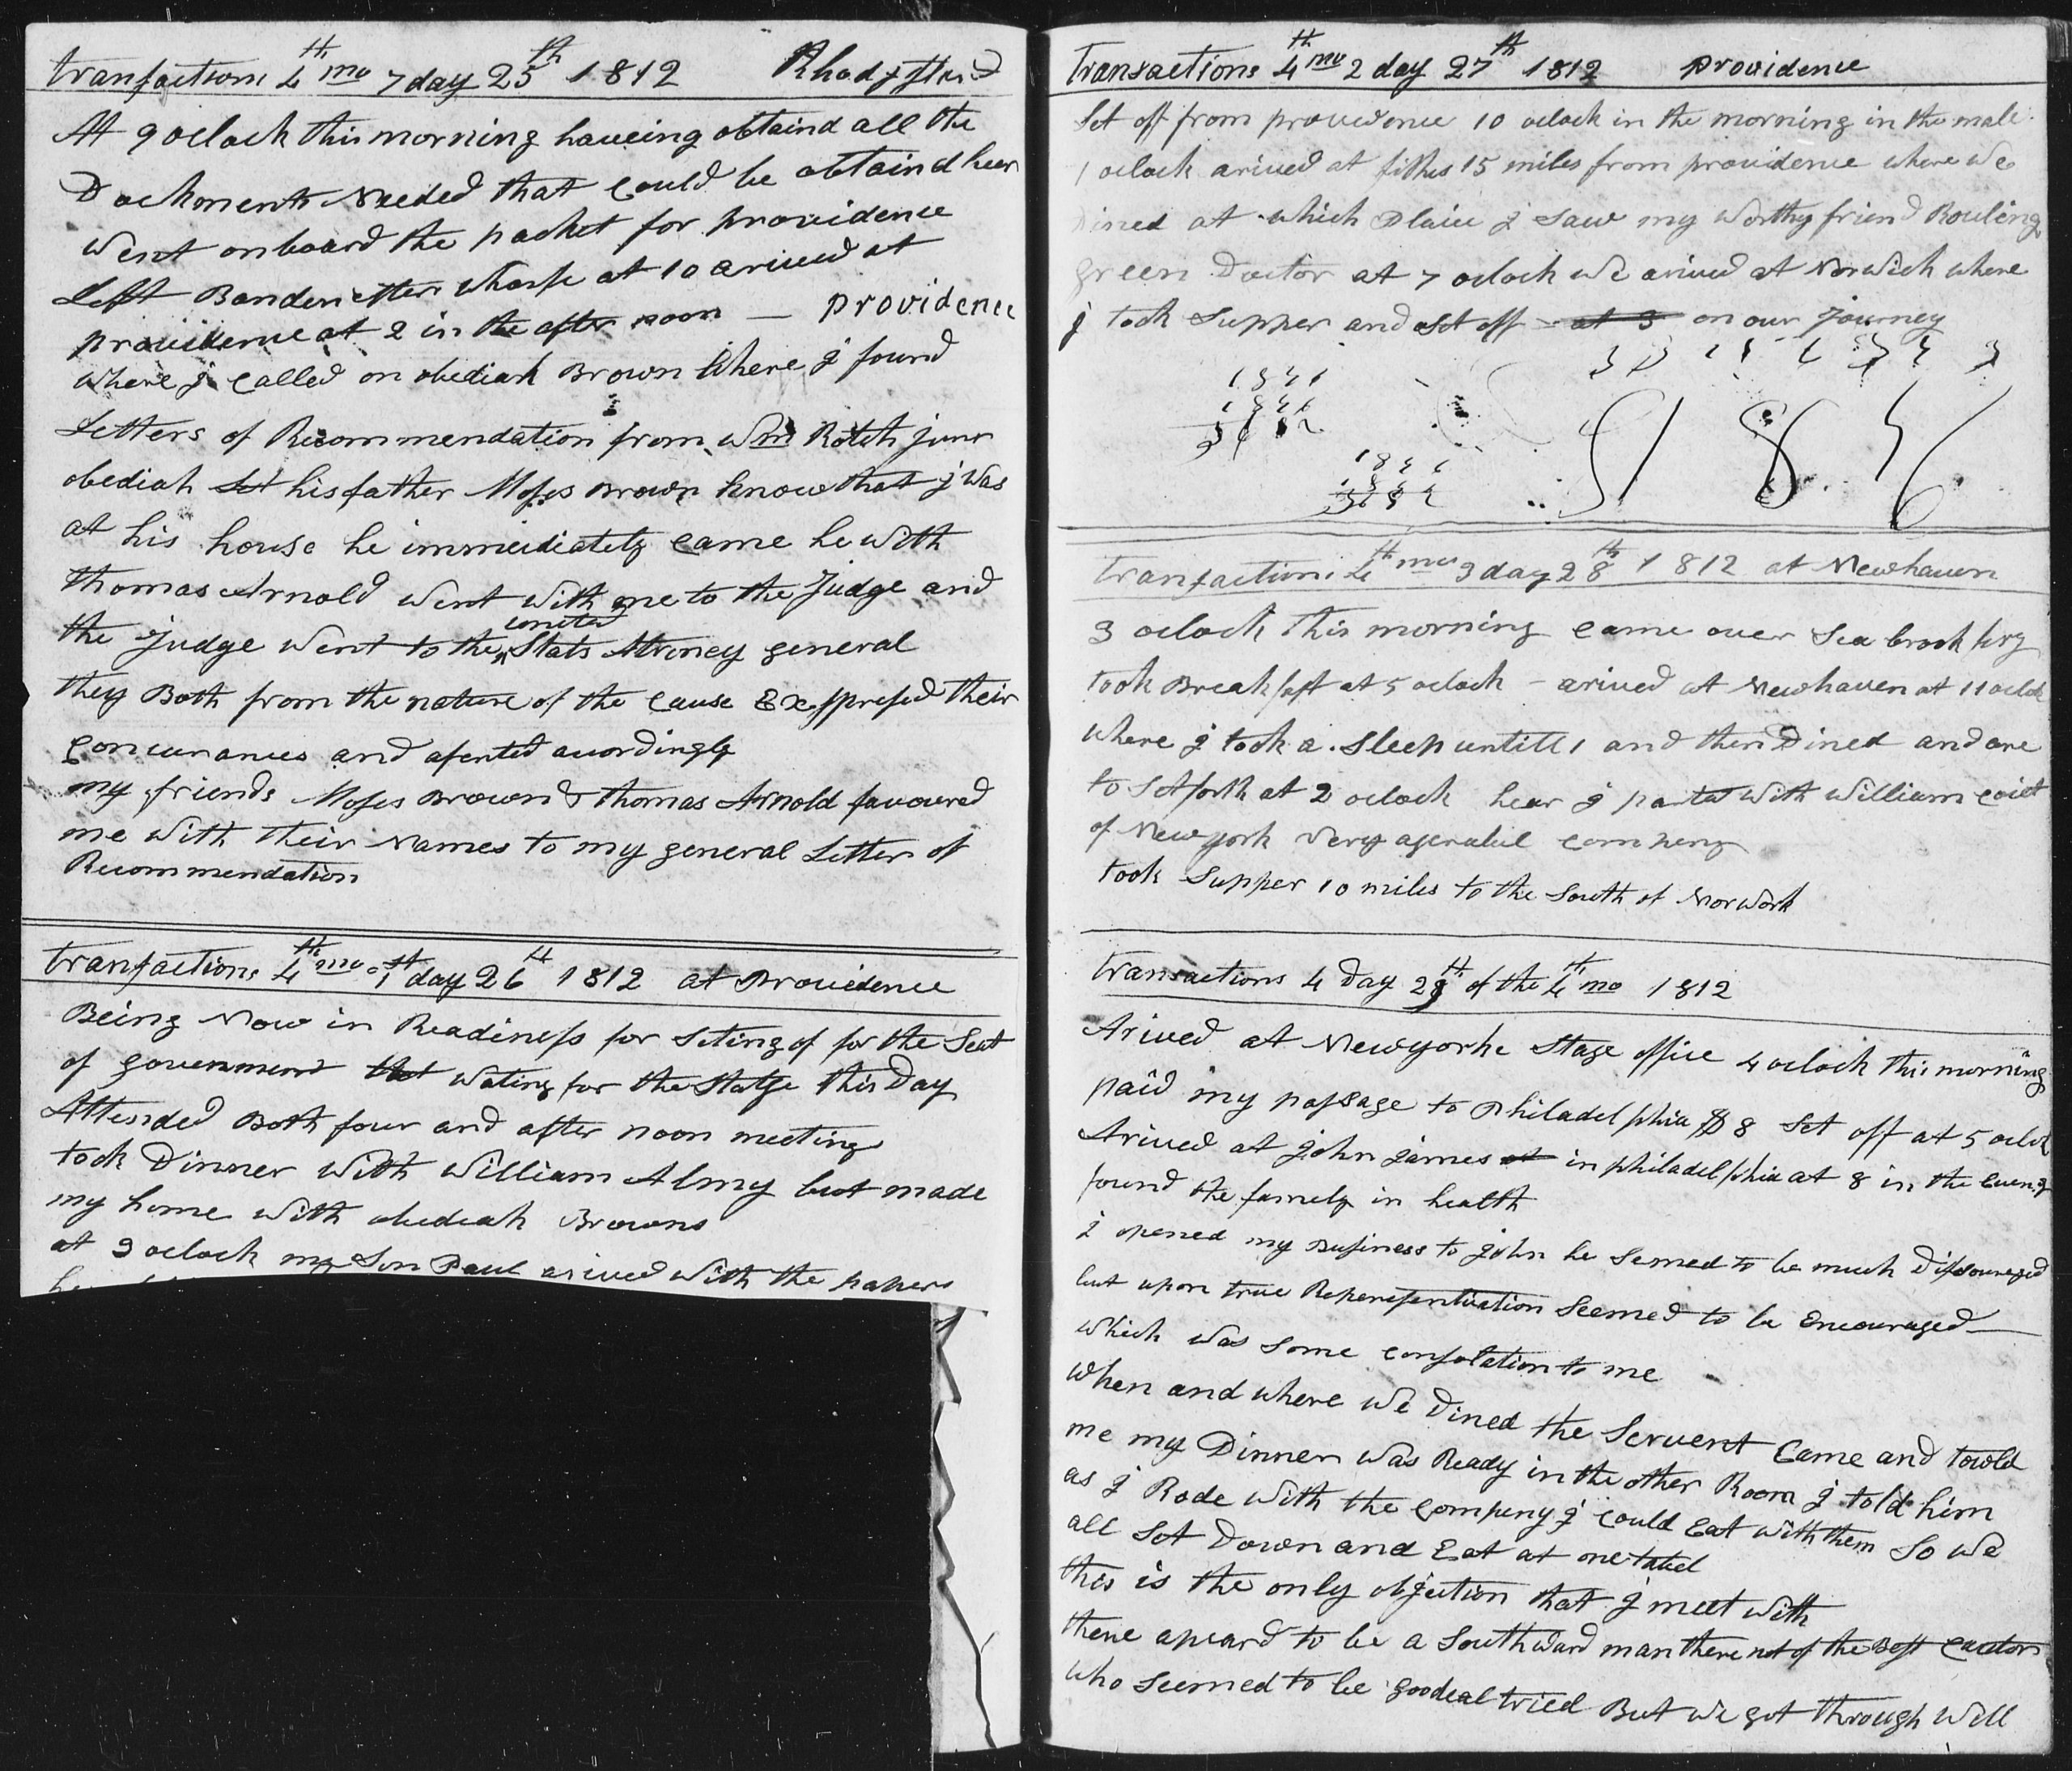 tranfactions 4th mo 7 day 25th 1812 Rhodjsland
At 9 oclock this morning haveing obtaind all the
Dockments Needed that Could be obtaind hear
Went onboard the packet for providence
Left wharfe at 10 arived at
providence at 2 in the after noon — providence
where j Called on obediah Brown Where j found
Letters of Recommendation from Wm Rotch junr
obediah let his father Moses Brown know that j was
at his house he immiediately Came he with
thomas Arnold Went With me to the Judge and
the Judge Went to the united Stats Attroney general
they Both from the nature of the Cause Expprefed their
Concurances and afented acordingly
my friends Moses Brown & thomas Arnold favoured
me With their Names to my general Letter of
Recommendation
tranfactions 4th mo 1st day 26th 1812 at Providence
Being Now in Readinefs for Seting of for the Seat
of government but Wating for the Statge this Day
Attended Both four and after noon meeting
took Dinner With William Almy but made
my home With obediah Browns
at 3 oclock my Son Paul arived With the papers
Transactions 4th mo 2 day 27th 1812 providence
Set off from providence 10 oclock in the morning in the male
1 oclock arived at fithes 15 miles from providence where We
Dined at which Plaice j Saw my Worthy friend Rouling
green Doctor at 7 oclock We arived at Norwich where
j took Supper and Set off at 3 on our Journey
tranfactions 4th mo 3 day 28th 1812 at Newhaven
3 oclock this morning Came over Sea brook fery
took Breakfast at 5 oclock – arived at Newhaven at 11 oclok
where j took a Sleep untill 1 and then Dined and are
to Set forth at 2 oclock hear j parted With William Coit
of Newyork Very agerabel Compeny
took Supper 10 miles to the South of Norwork
transactions 4 Day 29th of the 4th mo 1812
Arived at Newyorke Stage office 4 oclock this morning
paid my passage to Philadelphia $8 Set off at 5 oclok
Arived at john james at in philadelphia at 8 in the Evening
found the famely in health
j opened my Business to john he Semed to be much Discouraged
but upon true Reperesentuation Seemed to be Encouraged —
which was Some Consolation to me
When and where We Dined the Servent Came and towld
me my Dinner was Ready in the other Room j told him
as j Rode With the Compeny j Could Eat With them So We
all Set Down and Eat at one tabel
this is the only objection that j meet With
there apeard to be a Southward man there not of the Best
who Seemed to be goodeal tried But We got through Well